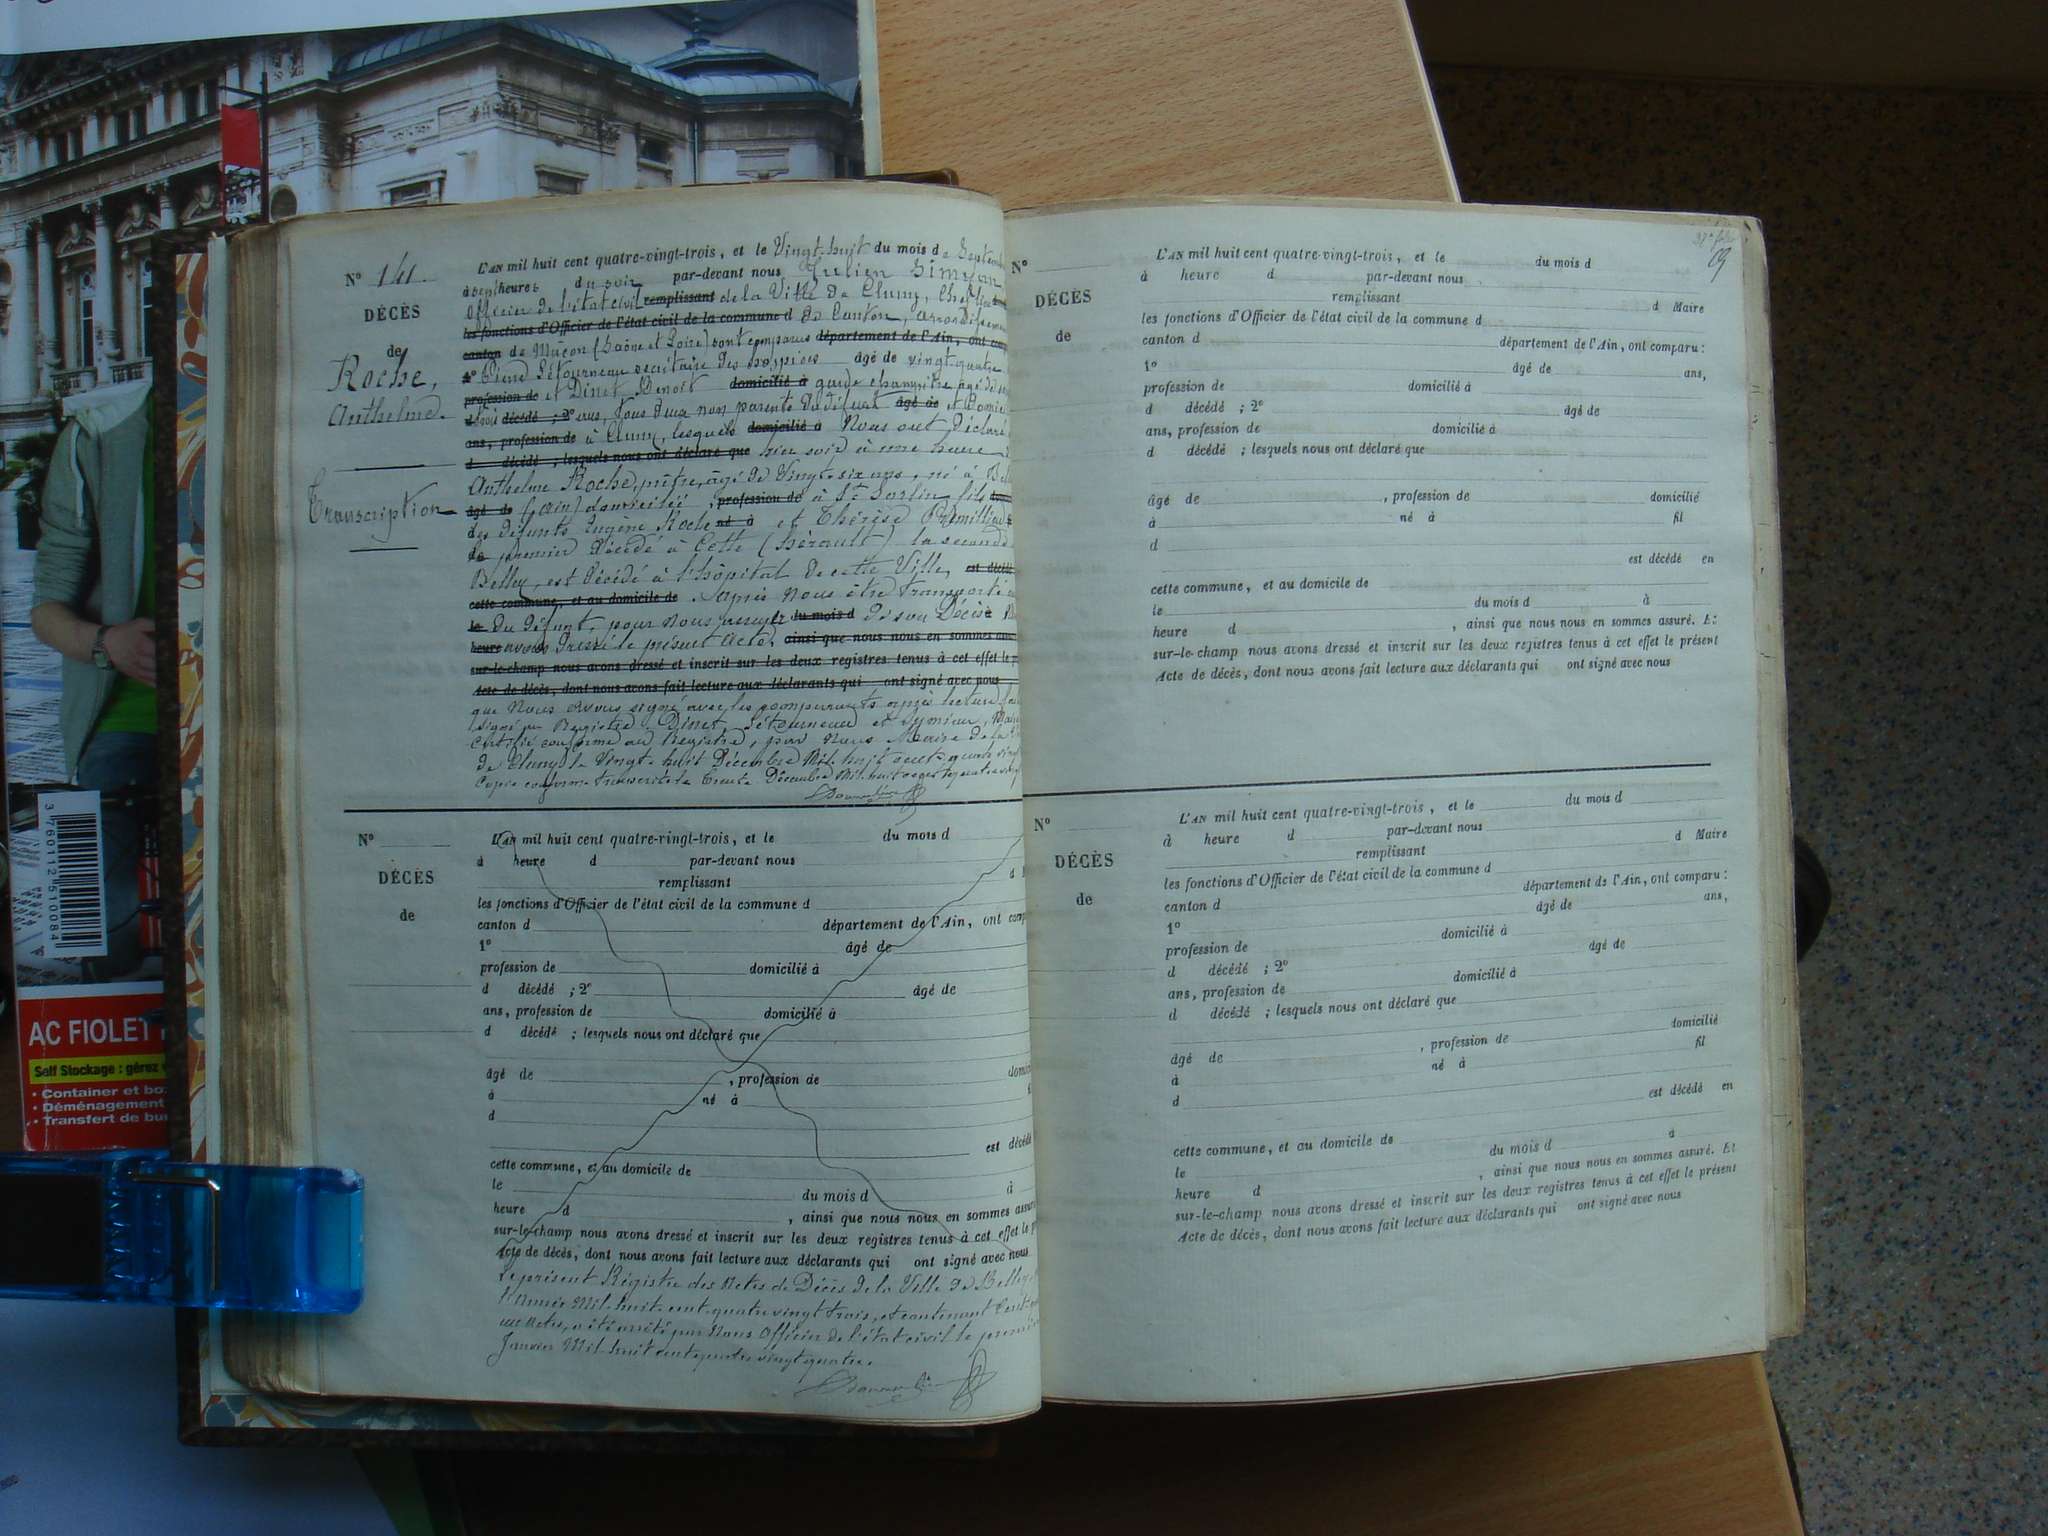 N° 141.
DÉCÈS
de
Roche,
Anthelme.
Transcription
L'AN mil huit cent quatre-vingt-trois, et le Vingt-huit du mois de Septembre
à sept heures du soir par-devant nous Julien Simyan
Officier de l'état civil remplissant de la Ville de Cluny, Chef-lieu
les fonctions d'Officier de l'état civil de la commune d de Canton, arrondissement
canton de Mâcon (Saône et Loire) sont comparus département de l'Ain, ont
1° Pierre Létourneau secrétaire des hospices âgé de vingt-quatre
profession de et Dinet Benoit domicilié à garde champêtre âgé de
décédé ; 2° ans, tous deux non parents du défunt âgé de et
ans, profession de à Cluny, lesquels domicilié à Nous ont déclaré
d décédé ; lesquels nous ont déclaré que hier soir à une heure
Anthelme Roche, prêtre, âgé de Vingt-six ans, né à
âgé de (ain) domicilié profession de à St Sorlin, fils
des défunts Eugène Roche né à et Thérèse
de premier décédé à Cette (hérault) la seconde
Belley, est décédé à l'hôpital de cette Ville, est décédé
cette commune, et au domicile de . d'après nous être transporté
le du défunt, pour nous assurer du mois d de son décès
heure avons dressé le présent acte, ainsi que nous nous en sommes
sur-le-champ nous avons dressé et inscrit sur les deux registres tenus à cet effet le
Acte de décès, dont nous avons fait lecture aux déclarants qui ont signé avec nous
que Nous avons signé avec les comparants après lecture
Signé au Registre Dinet Létourneau et Symian,
Certifié conforme au Registre, par Nous Maire de la
de Cluny le Vingt-huit Décembre Mil huit cent quatre vingt
Copie conforme transcrite le Trente Décembre Mil huit cent quatre vingt
N°
DÉCÈS
de
L'AN mil huit cent quatre-vingt-trois, et le du mois d
à heure d par-devant nous
remplissant d
les fonctions d'Officier de l'état civil de la commune d
canton d département de l'Ain, ont
1° âgé de
profession de domicilié à
d décédé ; 2° âgé de
ans, profession de domicilié à
d décédé ; lesquels nous ont déclaré que
âgé de , profession de
à né à
d
est décédé
cette commune, et au domicile de
le du mois d à
heure d , ainsi que nous nous en sommes
sur-le-champ nous avons dressé et inscrit sur les deux registres tenus à cet effet le
Acte de décès, dont nous avons fait lecture aux déclarants qui ont signé avec nous
Le présent Régistre des Actes de Décès de la Ville de Belley
l'Année Mil huit cent quatre vingt trois, et contenant Cent
un Actes, a été arrêté par Nous Officier de l'état civil le premier
Janvier Mil huit cent quatre vingt quatre.
N°
DÉCÈS
de
L'AN mil huit cent quatre-vingt-trois, et le du mois d
à heure d par-devant nous
remplissant d Maire
les fonctions d'Officier de l'état civil de la commune d
canton d département de l'Ain, ont comparu :
1° âgé de ans,
profession de domicilié à
d décédé ; 2° âgé de
ans, profession de domicilié à
d décédé ; lesquels nous ont déclaré que
âgé de , profession de domicilié
à né à fil
d
est décédé en
cette commune, et au domicile de
le du mois d à
heure d , ainsi que nous nous en sommes assuré. Et
sur-le-champ nous avons dressé et inscrit sur les deux registres tenus à cet effet le présent
Acte de décès, dont nous avons fait lecture aux déclarants qui ont signé avec nous
N°
DÉCÈS
de
L'AN mil huit cent quatre-vingt-trois, et le du mois d
à heure d par-devant nous
remplissant d Maire
les fonctions d'Officier de l'état civil de la commune d
canton d département de l'Ain, ont comparu :
1° âgé de ans,
profession de domicilié à
d décédé ; 2° âgé de
ans, profession de domicilié à
d décédé ; lesquels nous ont déclaré que
âgé de , profession de domicilié
à né à fil
d
est décédé en
cette commune, et au domicile de
le du mois d à
heure d , ainsi que nous nous en sommes assuré. Et
sur-le-champ nous avons dressé et inscrit sur les deux registres tenus à cet effet le présent
Acte de décès, dont nous avons fait lecture aux déclarants qui ont signé avec nous
3 760112 510084
AC FIOLET
Self Stockage : gérez
• Container et
• Déménagement
• Transfert de